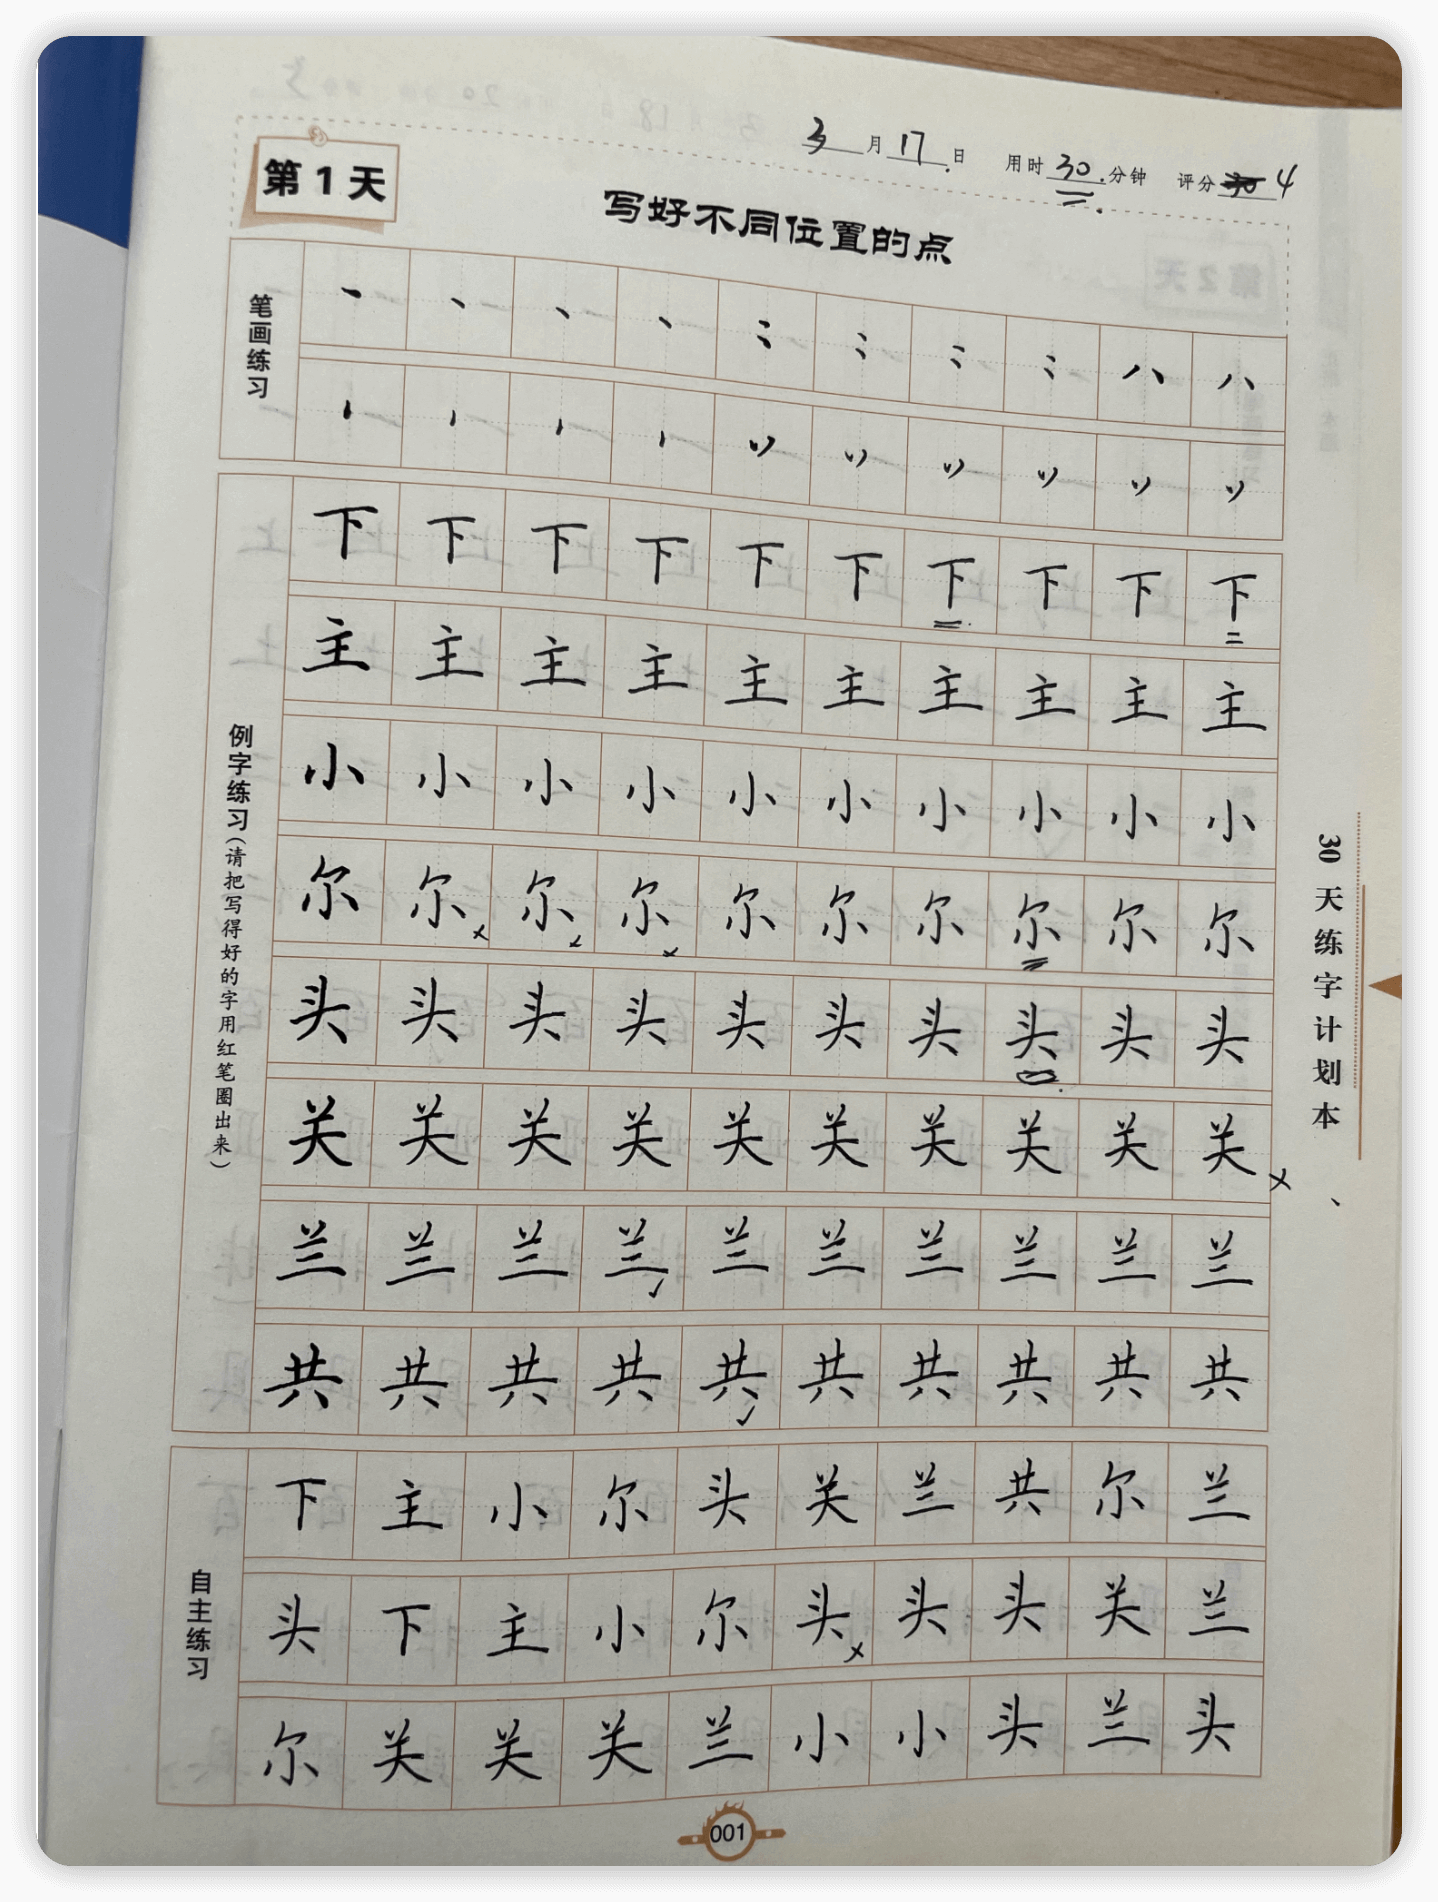 3月17日 用时30分钟 评分30 4
第1天
写好不同位置的点
笔画练习
例字练习(请把写得好的字用红笔圈出来)
下下下下下下下下下下
主主主主主主主主主主
小小小小小小小小小小
尔尔尔尔尔尔尔尔尔尔
头头头头头头头头头头
关关关关关关关关关关
兰兰兰兰兰兰兰兰兰兰
共共共共共共共共共共
自主练习
下主小尔头关兰共尔兰
头下主小尔头头头关兰
尔关关关兰小小头兰头
30天练字计划本
001